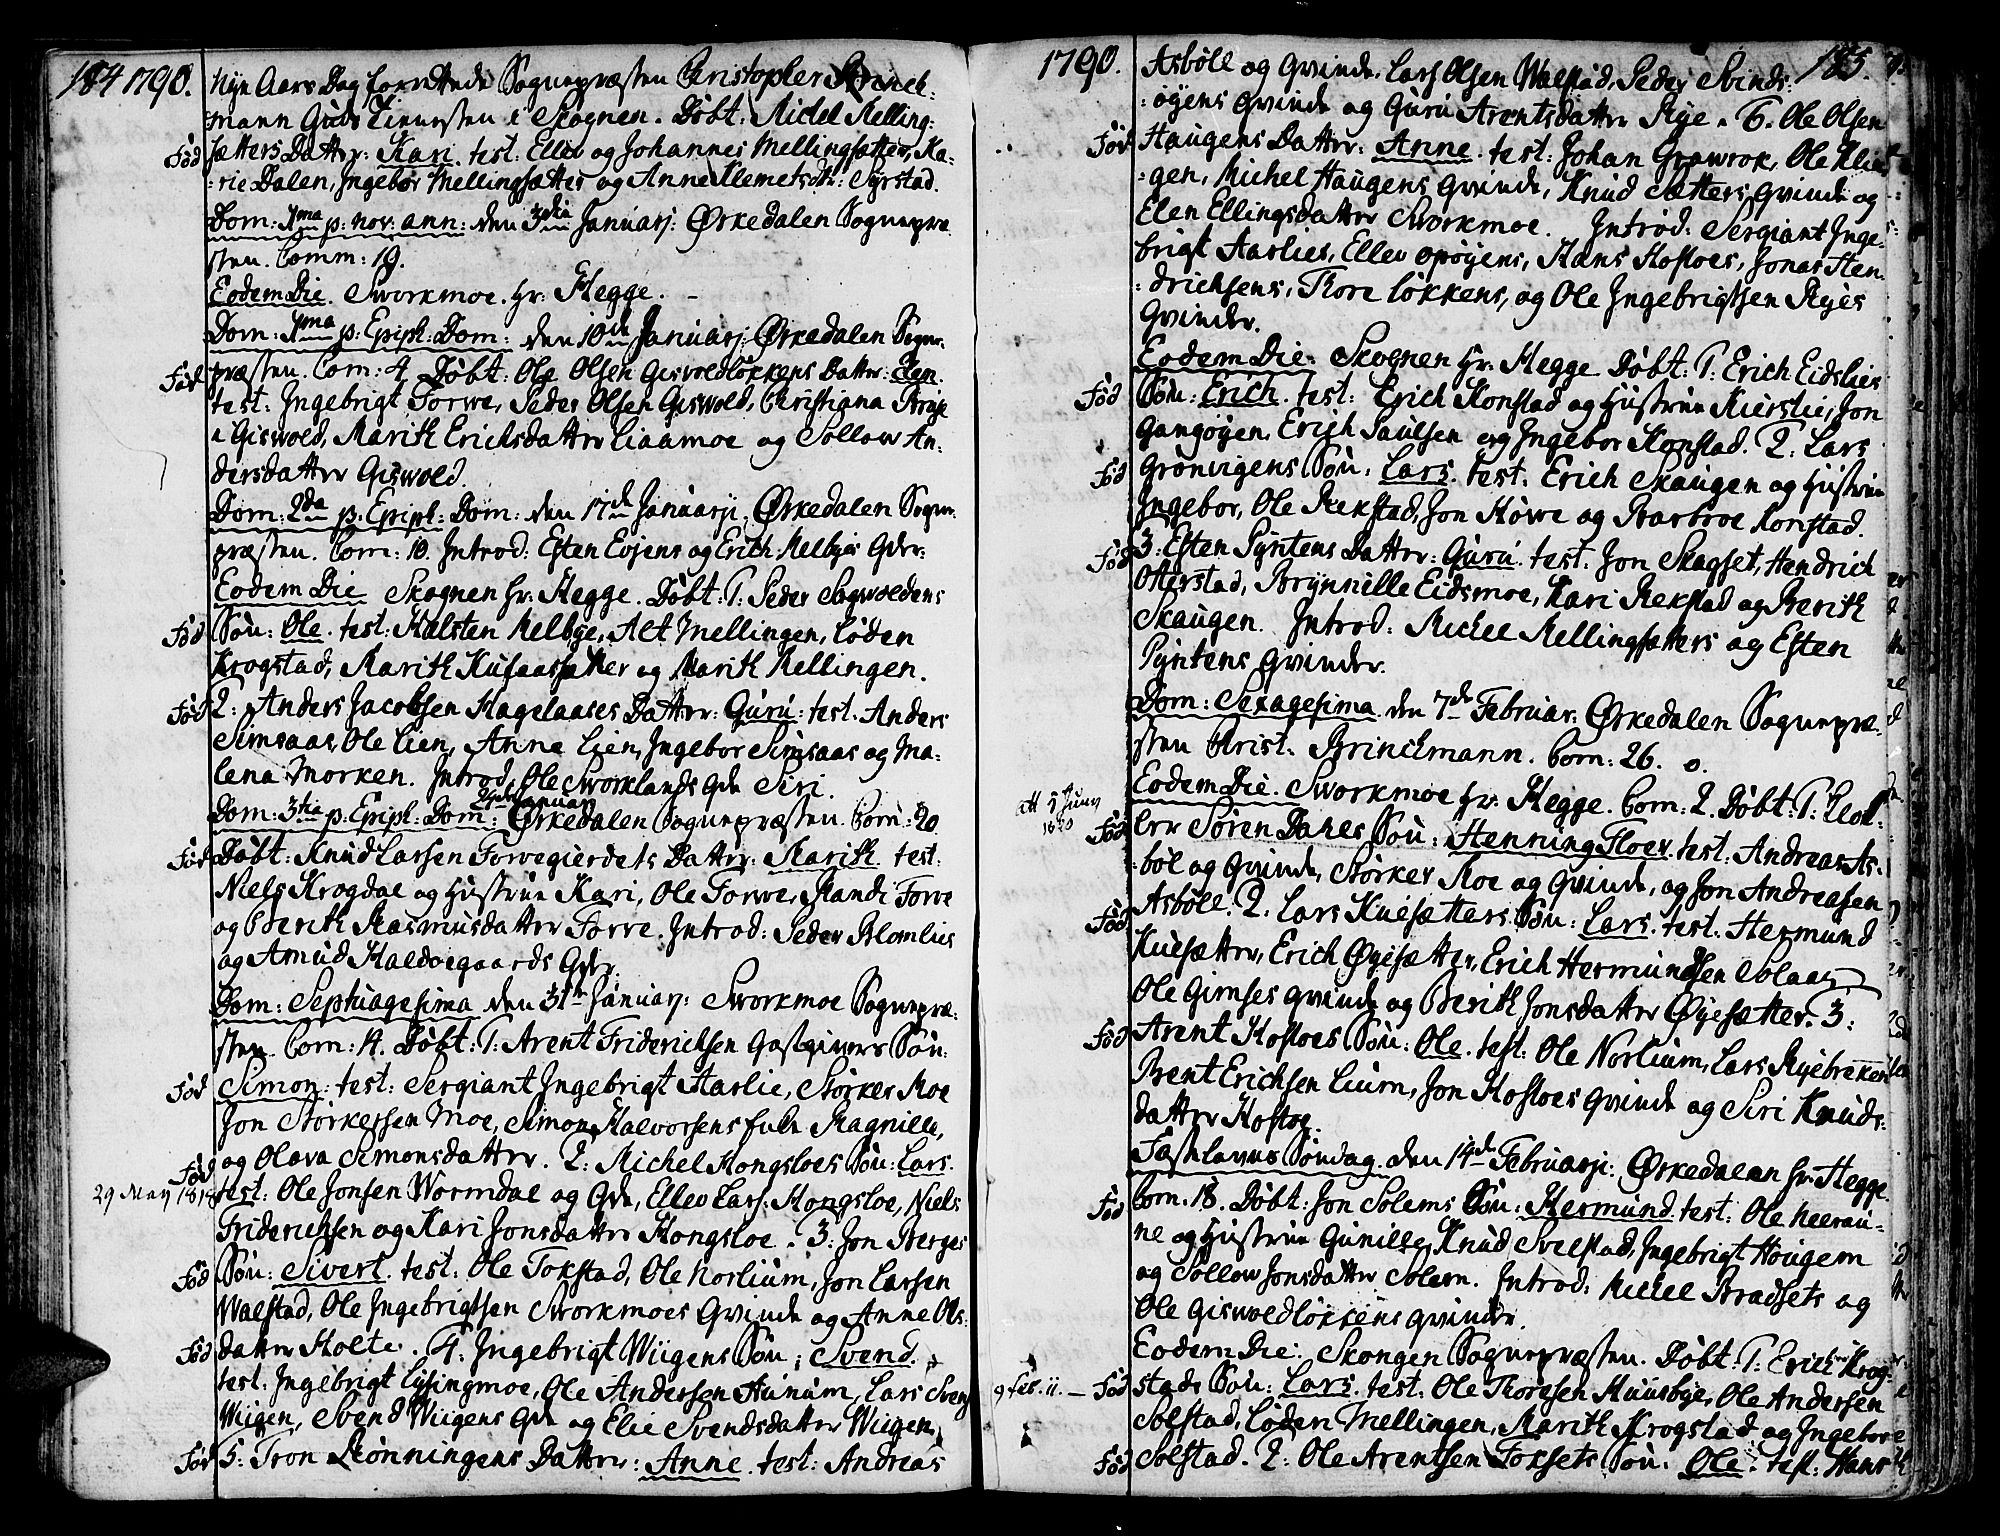 184 1790.
Nye Aars Dag forrettede Sognepræsten Christopher Brinck-
mann Guds Tienesten i Skognen. Døbt: Michel Melling-
Fød sætters Datter: Kari. test: Ellev og Johannes Mellingsætter, Ka-
rie Dalen, Ingebor Mellingsætter og Anne Klemetsdtr: Syrstad.
Dom: 1ma p: nov: ann: den 3die Januarj: Ørkedalen Sognepræ-
sten. Comm: 19.
Eodem Die. Sworkmoe. hr: Hegge.
Dom: 1ma p: Epiph: Dom: den 10de Januarj: Ørkedalen Sogne-
Fød præsten. Com: 4. Døbt: Ole Olsen Giswoldløkkens Datter: Elen.
test: Ingebrigt Forwe, Peder Olsen Giswold, Christiana
i Giswold, Marith Erichsdatter Liaamoe og Sollow An-
dersdatter Giswold.
Dom: 2da p: Epiph: Dom: den 17de Januarji Ørkedalen Sogne-
præsten. Com: 10. Introd: Esten Evjens og Erich Melbyes Qder:
Eodem Die Skognen hr: Hegge. Døbt: 1: Peder Sogwoldens
Fød Søn: Ole. test: Halsten Melbye, Alt Mellingen, Løden
Krogstad, Marith Kusaassætter og Marith Mellingen.
Fød 2: Anders Jacobsen Hagelaases Datter: Guru: test: Anders
Simsaas, Ole Lien, Anne Lien, Ingebor Simsaas og Ma-
lena Morken. Introd: Ole Sworklands Qde Siri.
24de Januarj
Dom: 3tia p: Epiph: Dom: Ørkedalen Sognepræsten. Com: 20.
Fød Døbt: Knud Larsen Forvegierdets Datter: Marith. test:
Niels Krogdal og Hustrue Kari, Ole Forwe, Randi Forve
og Berith Rasmusdatter Forve. Introd: Peder Blomlies
og Amud Haldoegaards Qder.
Dom: Septuagesima den 31te Januarj: Sworkmoe Sognepræ-
sten. Com: 4. Døbt: 1: Arent Friderichsen Gastgivers Søn:
Fød Simon: test: Sergiant Ingebrigt Aarlie, Størker Moe
Jon Størkersen Moe, Simon Halvorsens Enke Ragnille,
og Olava Simonsdatter. 2: Michel Hongsloes Søn: Lars.
Fød
29 May 1818 test: Ole Jonsen Wormdal og Qde, Ellev Lars: Hongsloe, Niels
Friderichsen og Kari Jonsdatter Hongsloe. 3: Jon Berges
Fød Søn: Sivert. test: Ole Tokstad, Ole Norlium, Jon Larsen
Walstad, Ole Ingebrigtsen Sworkmoes Qvinde og Anne Ols-
Fød datter Holte. 4: Ingebrigt Wiigens Søn: Svend.
test: Ingebrigt Lysingmoe, Ole Andersen Aunum, Lars Svens
Wiigen, Svend Wiigens Qde og Elie Svendsdatter Wiigen.
Fød 5: Tron Rønningens Datter: Anne. test: Andreas
1790. 185.
Asbøll og Qvinde, Lars Olsen Walstad, Peder Svinds-
øyens Qvinde og Guru Arentsdatter Rye. 6. Ole Olsen
Fød Haugens Datter: Anne. test: Johan Grawrok, Ole Klin-
gen, Michel Haugens Qvinde, Knud Sætters Qvinde og
Elen Ellingsdatter Sworkmoe. Introd: Sergiant Inge-
brigt Aarlies, Ellev Opøyens, Hans Hosloes, Jonas Hen-
drichsens, Tore Løkkens, og Ole Ingebrigtsen Ryes
Qvinder.
Eodem Die. Skognen hr: Hegge Døbt: 1: Erich Eidslies
Fød Søn: Erich. test: Erich Konstad og Hustrue Kierstie, Jon
Gangøyen, Erich Paulsen og Ingebor Konstad. 2: Lars
Fød Grønvigens Søn: Lars. test: Erich Skaugen og Hustrue
Ingebor, Ole Rekstad, Jon Howe og Barbroe Konstad.
Fød 3: Esten Pyntens Datter: Guru. test: Jon Skagset, Hendrich
Otterstad, Brynnille Eidsmoe, Kari Rekstad og Berith
Skaugen. Introd: Michel Mellingsætters og Esten
Pyntens Qvinder.
Dom: Sexagesima den 7de Februar: Ørkedalen Sognepræ-
sten Christ: Brinckmann. Com: 26. o.
Eodem Die. Sworkmoe hr: Hegge. Com: 2. Døbt: 1:
att 5 Juny 1820
Fød Søren Dahls Søn: Henning Floer. test: Andreas As-
bøl og Qvinde, Størker Moe og Qvinde, og Jon Andreasen
Fød Asbøll. 2: Lars Kuesætters Søn: Lars. test: Hermund
Kuesætter, Erich Øyesætter, Erich Hermundsen Solaas,
Ole Gimses Qvinde og Berith Jonsdatter Øyesætter. 3:
Fød Arent Hosloes Søn: Ole. test: Ole Norlium, Lars Ryebrekken
Brent Erichsen Lium, Jon Hosloes Qvinde og Siri Knuds-
datter Hosloe.
Fastelavns Søndag den 14de Februarji: Ørkedalen hr: Hegge.
Fød Com: 18. Døbt: Jon Solems Søn: Hermund. test: Ole
ne og Hustrue Gunille, Knud Svelstad, Ingebrigt Hougem
og Sollow Jonsdatter Solem. Introd: Michel Bradsets og
Ole Giswoldløkkens Qvinder.
Eodem Die: Skongen Sognepræsten. Døbt: 1: Erich Krog-
9 Feb. 11. — Fød stads Søn: Lars. test: Ole Thoresen Huusbye, Ole Andersen
Solstad, Løden Mellingen, Marith Krogstad og Ingebor
Fød Solstad. 2: Ole Arentsen Foksets Søn: Ole. test: Hans